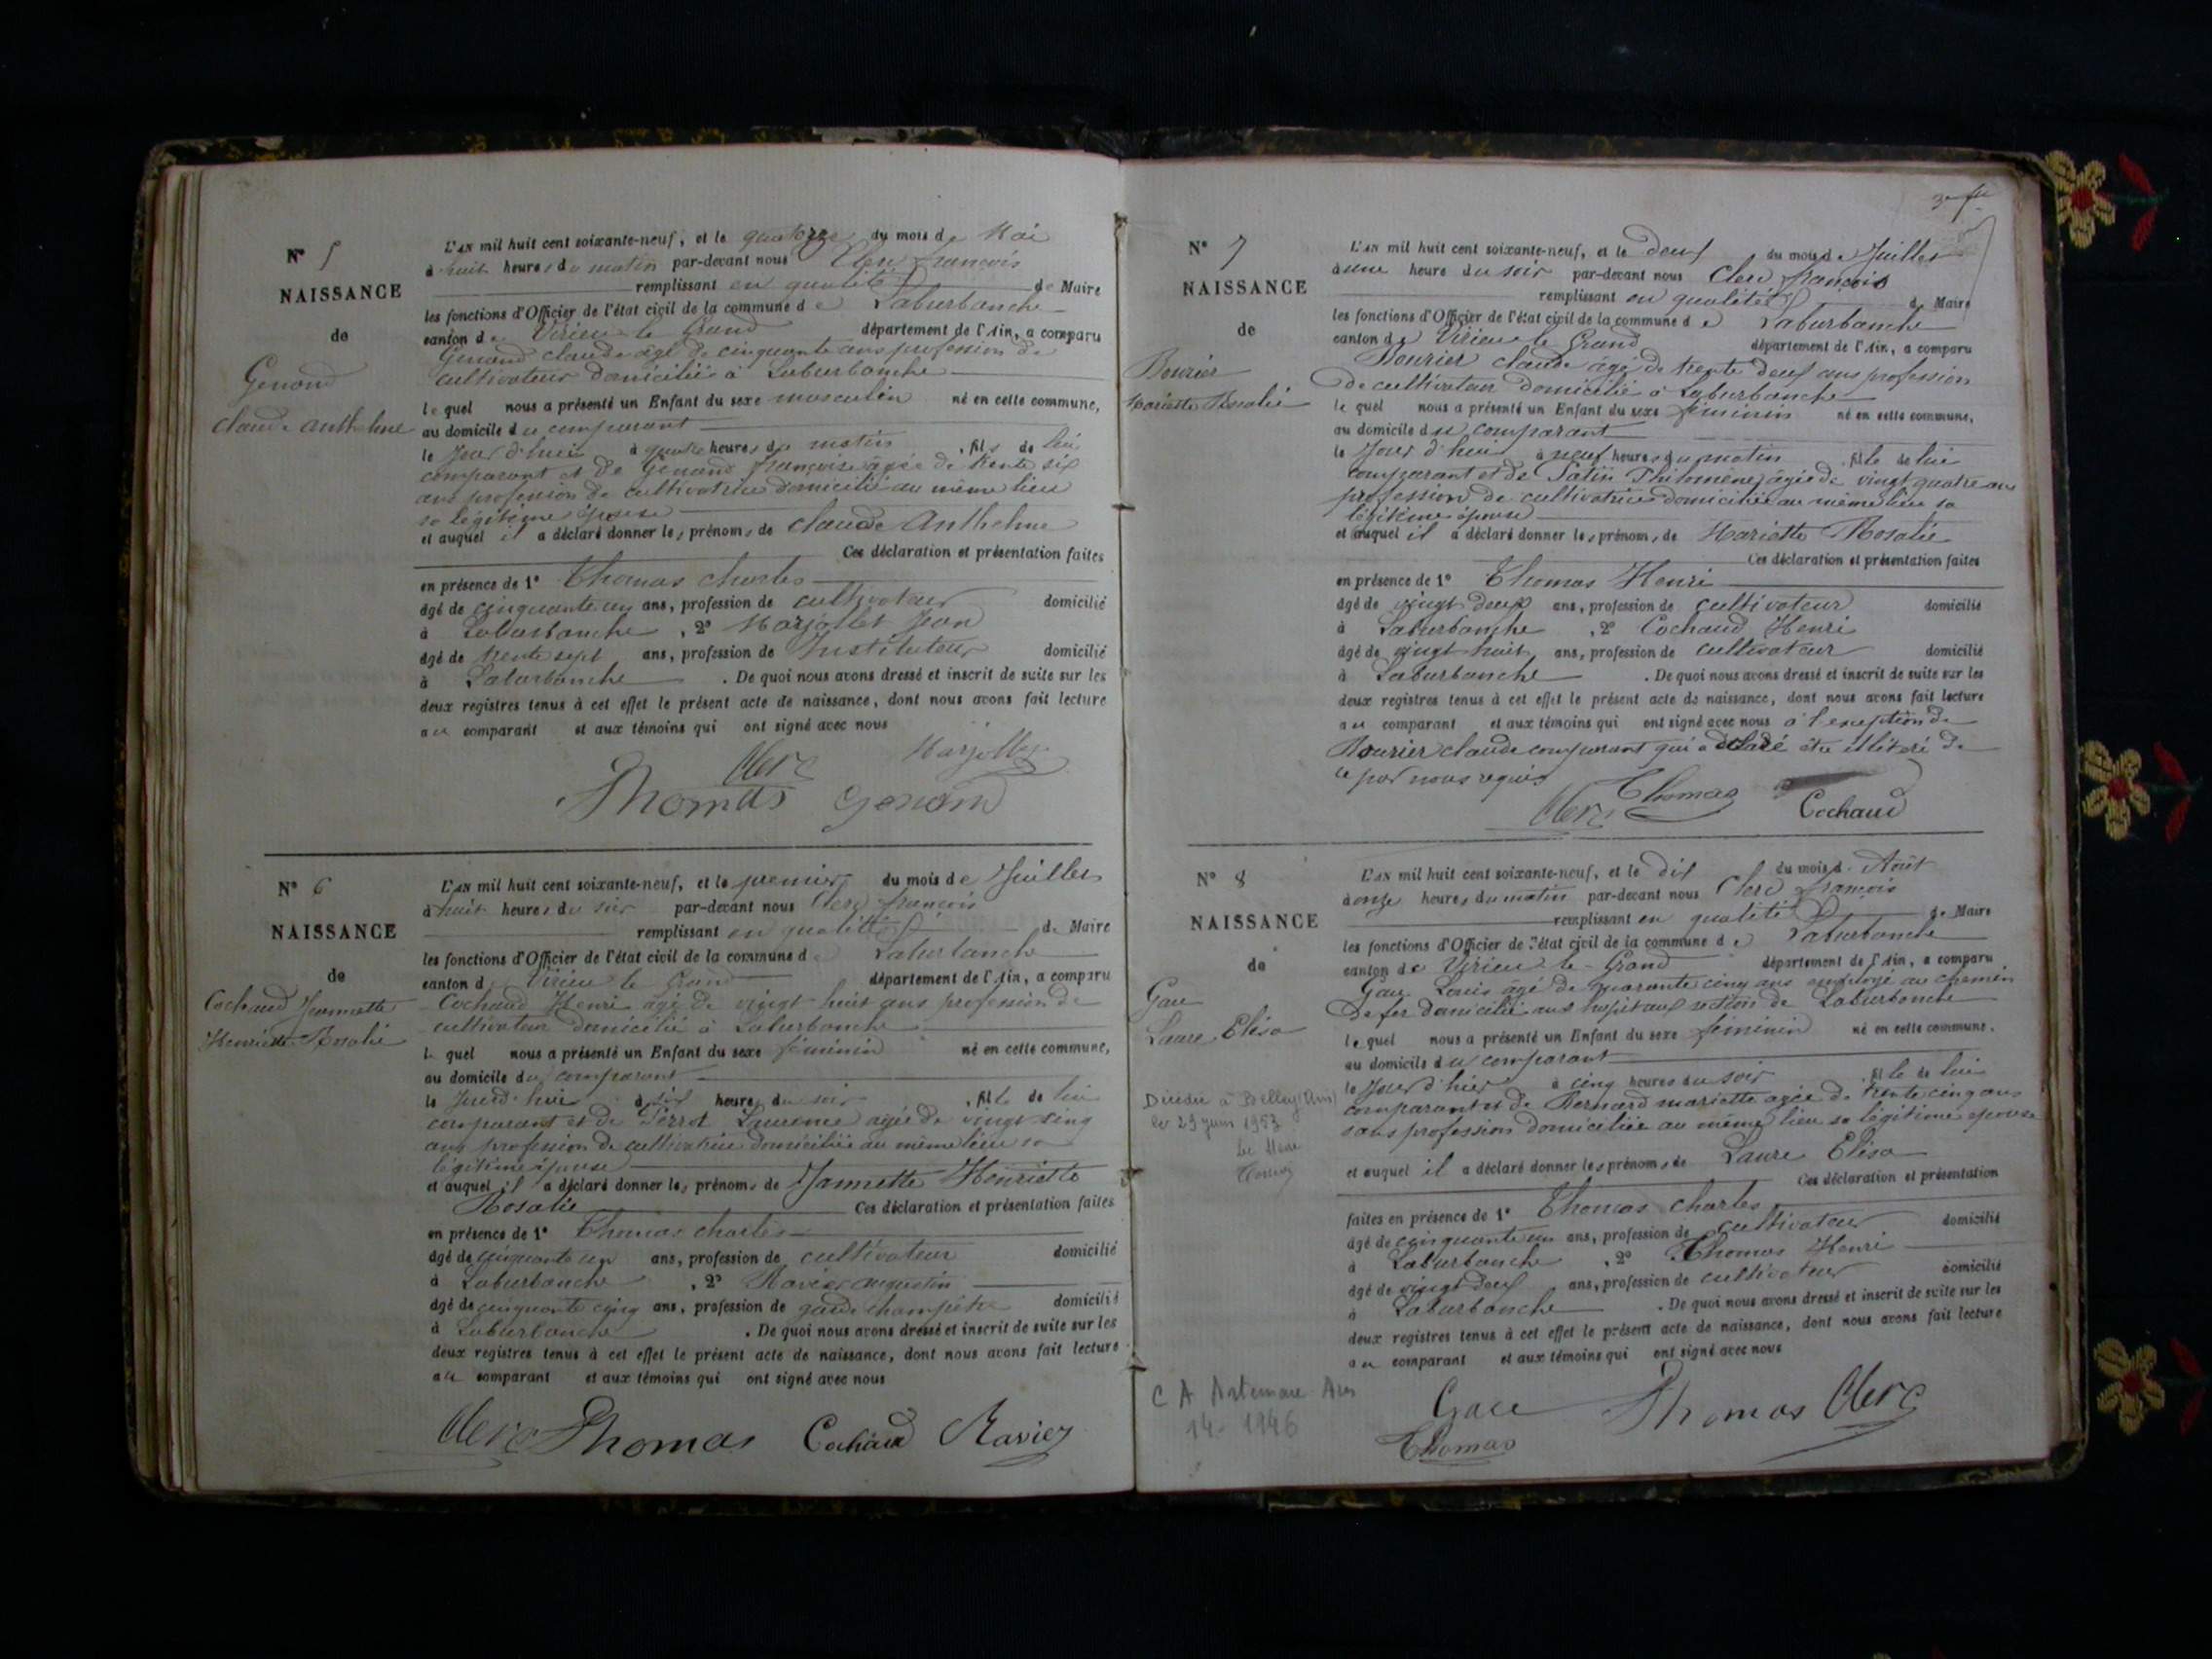 N° 5
NAISSANCE
de
Genand
Claude Anthelme
L'AN mil huit cent soixante-neuf, et le quatorze du mois de Mai
à huit heures du matin par-devant nous Clerc françois
remplissant en qualité de Maire
les fonctions d'Officier de l'état civil de la commune de Laburbanche
canton de Virieu le Grand département de l'Ain, a comparu
Genand claude âgé de cinquante ans profession de
cultivateur domicilié à Laburbanche
lequel nous a présenté un Enfant du sexe masculin né en cette commune,
au domicile du comparant
le Jour d'hui à quatre heures du matin , fils de lui
comparant et de Genand françoise âgée de trente six
ans profession de cultivatrice domicilié au même lieu
sa légitime épouse
et auquel il a déclaré donner les prénoms de claude Anthelme
Ces déclaration et présentation faites
en présence de 1° Thomas charles
âgé de cinquante un ans, profession de cultivateur domicilié
à Laburbanche , 2° Marjollet Jean
âgé de trente sept ans, profession de Instituteur domicilié
à Laburbanche . De quoi nous avons dressé et inscrit de suite sur les
deux registres tenus à cet effet le présent acte de naissance, dont nous avons fait lecture
au comparant et aux témoins qui ont signé avec nous
Clerc Marjollet
Thomas Genand
N° 6
NAISSANCE
de
Cochaud Jeannette
Henriette Rosalie
L'AN mil huit cent soixante-neuf, et le premier du mois de Juillet
à huit heures du soir par-devant nous Clerc françois
remplissant en qualité de Maire
les fonctions d'Officier de l'état civil de la commune de Laburbanche
canton de Virieu le Grand département de l'Ain, a comparu
Cochaud Henri âgé de vingt huit ans profession de
cultivateur domicilié à Laburbanche
lequel nous a présenté un Enfant du sexe féminin né en cette commune,
au domicile du comparant
le Jour d'hui à six heures du soir , fille de lui
comparant et de Perrot Laurence âgée de vingt cinq
ans profession de cultivatrice domiciliée au même lieu sa
légitime épouse
et auquel il a déclaré donner les prénoms de Jannette Henriette
Rosalie Ces déclaration et présentation faites
en présence de 1° Thomas charles
âgé de cinquante un ans, profession de cultivateur domicilié
à Laburbanche , 2° Ravier augustin
âgé de cinquante cinq ans, profession de garde champêtre domicilié
à Laburbanche . De quoi nous avons dressé et inscrit de suite sur les
deux registres tenus à cet effet le présent acte de naissance, dont nous avons fait lecture
au comparant et aux témoins qui ont signé avec nous
Clerc Thomas Cochaud Ravier
N° 7
NAISSANCE
de
Bourier
Mariette Rosalie
L'AN mil huit cent soixante-neuf, et le deux du mois de Juillet
à une heure du soir par-devant nous Clerc françois
remplissant en qualité de Maire
les fonctions d'Officier de l'état civil de la commune de Laburbanche
canton de Virieu le Grand département de l'Ain, a comparu
Bourier claude âgé de trente deux ans profession
de cultivateur domicilié à Laburbanche
lequel nous a présenté un Enfant du sexe féminin né en cette commune,
au domicile du comparant
le Jour d'hui à neuf heures du matin , fille de lui
comparant et de Philomène âgée de vingt quatre ans
profession de cultivatrice domiciliée au même lieu sa
légitime épouse
et auquel il a déclaré donner les prénoms de Mariette Rosalie
Ces déclaration et présentation faites
en présence de 1° Thomas Henri
âgé de vingt deux ans, profession de cultivateur domicilié
à Laburbanche , 2° Cochaud Henri
âgé de vingt huit ans, profession de cultivateur domicilié
à Laburbanche . De quoi nous avons dressé et inscrit de suite sur les
deux registres tenus à cet effet le présent acte de naissance, dont nous avons fait lecture
au comparant et aux témoins qui ont signé avec nous à l'exception de
Bourier claude comparant qui a déclaré être illitéré de
ce par nous requis
Clerc Thomas Cochaud
N° 8
NAISSANCE
de
Gau
Laure Elisa
Décédée à Belley (Ain)
le 29 juin 1957
C A Artemare Ain
14- 1946
L'AN mil huit cent soixante-neuf, et le dix du mois d'Août
à onze heures du matin par-devant nous Clerc françois
remplissant en qualité de Maire
les fonctions d'Officier de l'état civil de la commune de Laburbanche
canton de Virieu le Grand département de l'Ain, a comparu
Gau Louis âgé de quarante cinq ans employé au chemin
de fer domicilié aux hopitaux section de Laburbanche
lequel nous a présenté un Enfant du sexe féminin né en cette commune.
au domicile du comparant
le Jour d'hier à cinq heures du soir , fille de lui
comparant et de Bernard mariette agée de trente cinq ans
sans profession domiciliée au même lieu sa légitime épouse
et auquel il a déclaré donner les prénoms de Laure Elisa
Ces déclaration et présentation
faites en présence de 1° Thomas charles
âgé de cinquante un ans, profession de cultivateur domicilié
à Laburbanche , 2° Thomas Henri
âgé de vingt deux ans, profession de cultivateur domicilié
à Laburbanche . De quoi nous avons dressé et inscrit de suite sur les
deux registres tenus à cet effet le présent acte de naissance, dont nous avons fait lecture
au comparant et aux témoins qui ont signé avec nous
Thomas Clerc
Thomas